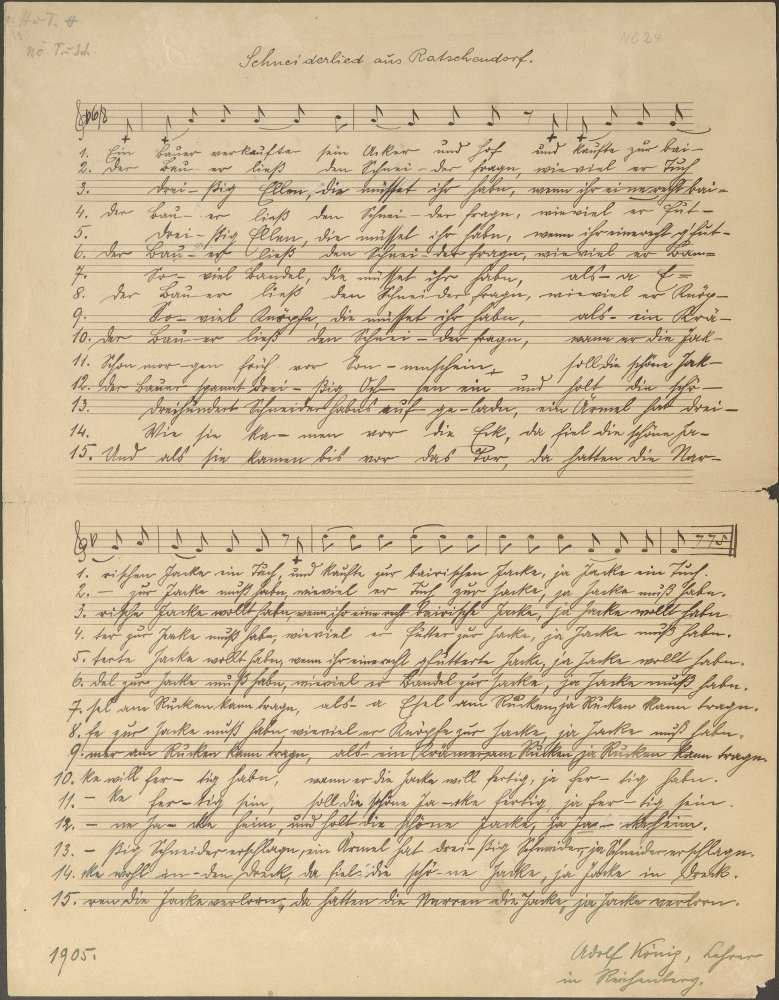 H. u. T. 8
nö T. Sch.
NG 24
Schneiderlied aus Ratschendorf.
6/8
1. Ein Bauer verkaufte sein Acker und Hof und kaufte zur bai-
2. Der Bau- er ließ den Schnei- der fragn, wieviel er Tuch
3. Drei- ßig Ellen, die müsset ihr habn, wenn ihr eine recht bai-
4. Der Bau- er ließ den Schnei- der fragn, wieviel er Füt-
5. Drei- ßig Ellen, die müsset ihr habn, wenn ihr eine recht gfut-
6. Der Bau- er ließ den Schnei- der fragn, wieviel er Ban-
7. So- viel Bandel, die müsset ihr habn, als- a E-
8. Der Bau- er ließ den Schneider fragn, wieviel er Knöp-
9. So- viel Knöpfe, die müsset ihr habn, als- ein Krä-
10. Der Bau- er ließ den Schnei- der fragn, wann er die Jak-
11. Schon mor- gen früh vor Son- nenschein, soll die schöne Jak-
12. Der Bauer spannt drei- ßig Och- sen ein und holt die schö-
13. Dreihundert Schneider habns auf- ge- ladn, ein Ärmel hat drei-
14. Wie sie ka- men vor die Eck, da fiel die schöne Ja-
15. Und als sie kamen bis vor das Tor, da hatten die Nar-
1. rischen Jacke ein Tuch, und kaufte zur bairischen Jacke, ja Jacke ein Tuch.
2. - zur Jacke muß habn, wieviel er Tuch zur Jacke, ja Jacke muß habn.
3. rische Jacke wollt habn, wenn ihr eine recht bairische Jacke, ja Jacke wollt habn.
4. ter zur Jacke muß habn, wieviel er Futter zur Jacke, ja Jacke muß habn.
5. terte Jacke wollt habn, wenn ihr eine recht gfutterte Jacke, ja Jacke wollt habn.
6. del zur Jacke muß habn, wieviel er Bandel zur Jacke, ja Jacke muß habn.
7. sel am Rücken kann tragn, als- a Esel am Rücken, ja Rücken kann tragn.
8. fe zur Jacke muß habn, wieviel er Knöpfe zur Jacke, ja Jacke muß habn.
9. mer am Rücken kann tragn, als- ein Krämer am Rücken, ja Rücken kann tragn.
10. ke will fer- tig habn, wann er die Jacke will fertig, ja fer- tig habn.
11. - ke fer- tig sein, soll die schöne Ja- cke fertig, ja fer- tig sein.
12. - ne Ja- cke heim, und holt die schöne Jacke, ja Ja- cke heim.
13. - ßig Schneider erschlagn, ein Ärmel hat drei- ßig Schneider, ja Schneider erschlagn.
14. cke wohl in- den Dreck, da fiel- die schö- ne Jacke, ja Jacke in Dreck.
15. ren die Jacke verlorn, da hatten die Narren die Jacke, ja Jacke verlorn.
1905.
Adolf König, Lehrer
in Reichenberg.